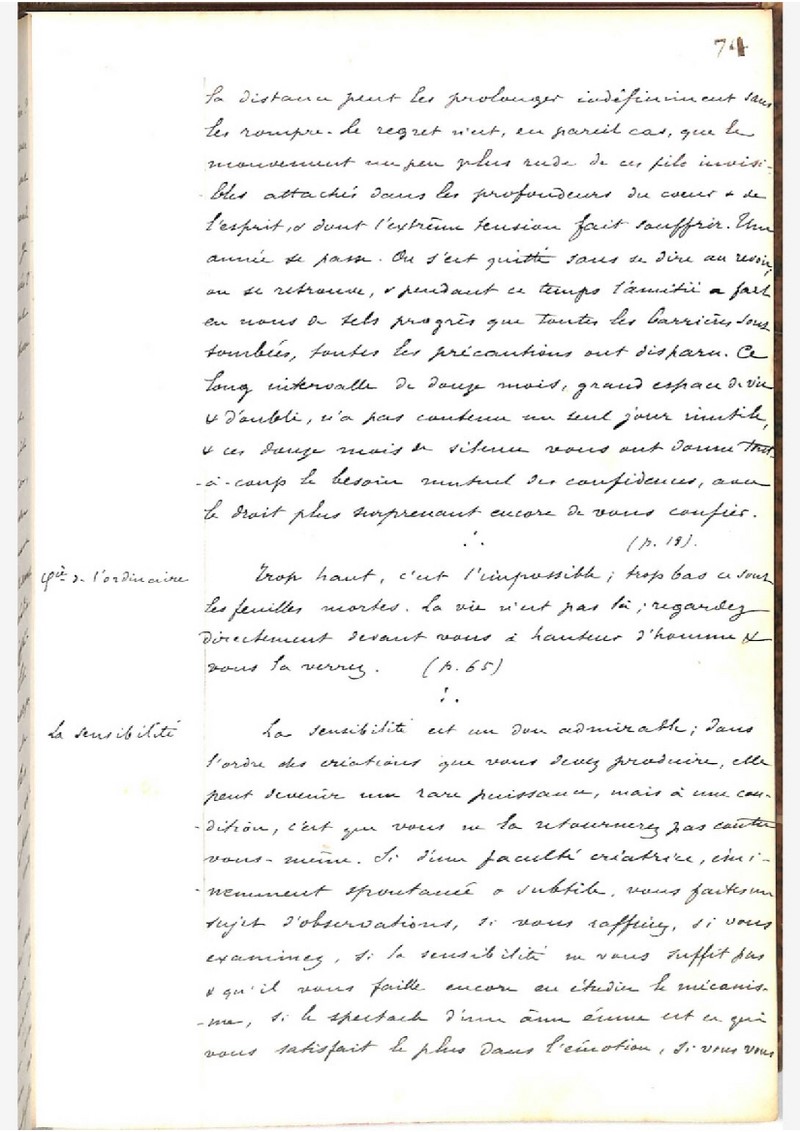 74
la distance peut les prolonger indéfiniment sans
les rompre. Le regret n'est, en pareil cas, que le
mouvement un peu plus rude de ces fils invisi-
bles attachés dans les profondeurs du coeur & de
l'esprit, & dont l'extrême tension fait souffrir. Une
année se passe. On s'est quitté sans se dire au revoir,
on se retrouve, & pendant ce temps l'amitié a fait
en nous de tels progrès que toutes les barrières sont
tombées, toutes les précautions ont disparu. Ce
long intervalle de douze mois, grand espace de vie
& d'oubli, n'a pas contenu un seul jour inutile,
& ces douze mois de silence vous ont donné tout-
-à-coup le besoin mutuel des confidences, avec
le droit plus surprenant encore de vous confier.
(p. 18).
de l'ordinaire
Trop haut, c'est l'impossible ; trop bas ce sont
les feuilles mortes. La vie n'est pas là ; regardez
directement devant vous à hauteur d'homme &
vous la verrez. (p. 65)
La sensibilité
La sensibilité est un don admirable ; dans
l'ordre des créations que vous devez produire, elle
peut devenir une rare puissance, mais à une con-
-dition, c'est que vous ne la retournerez pas contre
vous-même. Si d'une faculté créatrice, émi-
-nemment spontanée & subtile, vous faites un
sujet d'observations, si vous raffinez, si vous
examinez, si la sensibilité ne vous suffit pas
& qu'il vous faille encore en étudier le mécanis-
-me, si le spectacle d'une âme émue est ce qui
vous satisfait le plus dans l'émotion, si vous vous